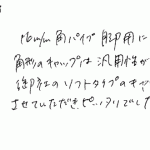 16m/m 角パイプ 脚用に
角形のキャップは 汎用性が
継続性のソフトタイプのキャ
させていただき ピッタリでした